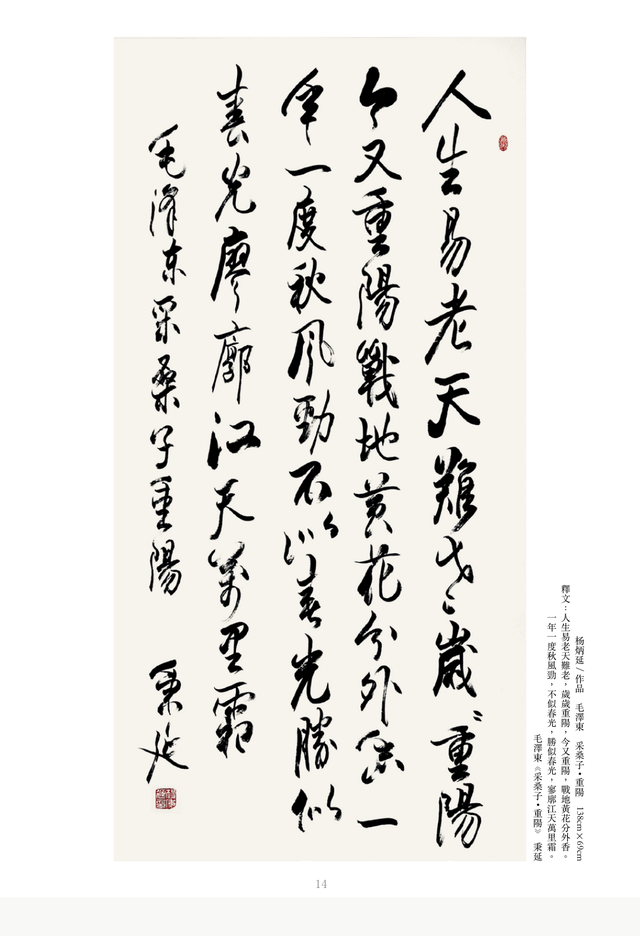 人生易老天難老歲〻重陽
今又重陽戰地黃花分外香一
年一度秋風勁不似春光勝似
春光廖廓江天萬里霜
毛澤东采桑子重陽 秉延
杨炳延/作品 毛澤東 采桑子•重陽 138cm×69cm
釋文：人生易老天難老，歲歲重陽，今又重陽，戰地黃花分外香。
一年一度秋風勁，不似春光，勝似春光，寥廓江天萬里霜。
毛澤東《采桑子•重陽》 秉延
14